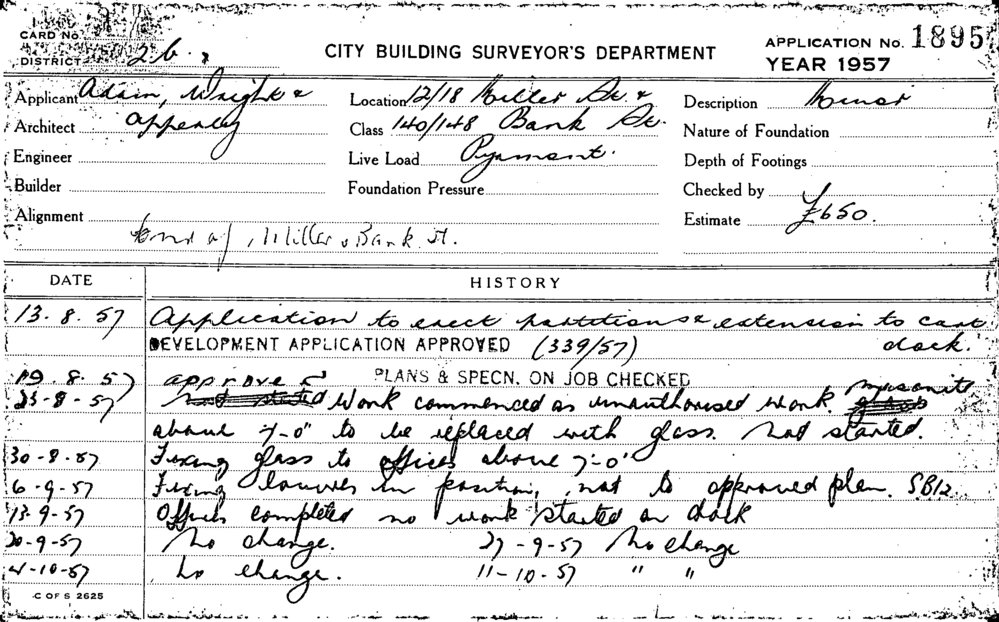 CARD No.
DISTRICT 26.
CITY BUILDING SURVEYOR'S DEPARTMENT
APPLICATION No. 1895
YEAR 1957
Applicant Adam, Wright &
Architect Apperly
Engineer
Builder
Alignment
Location 12/18 Miller St. &
Class 140/148 Bank St.
Live Load Pyrmont.
Foundation Pressure
Description Minor
Nature of Foundation
Depth of Footings
Checked by
Estimate £650.
Cnr of Miller & Bank St.
DATE HISTORY
13.8.57 Application to erect partitions & extension to cart
DEVELOPMENT APPLICATION APPROVED (339/57) dock.
19.8.57 approved PLANS & SPECN. ON JOB CHECKED
23-8-57 not started Work commenced as unauthorised work. masonite
above 7-0" to be replaced with glass. Not started.
30-8-57 Fixing glass to offices above 7'-0"
6-9-57 Fixing louvres in position, not to approved plan. SB12.
13-9-57 Offices completed no work started on dock
20-9-57 No change. 27-9-57 No change
4-10-57 No change. 11-10-57 " "
C OF S 2625